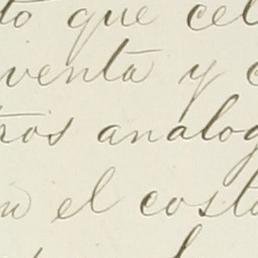 to que cel
venta y c
tros analog
n el costo